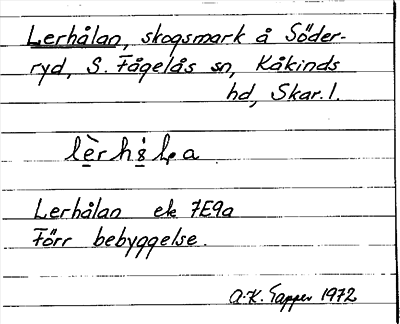 Lerhålan, skogsmark å Söder-
ryd, S. Fågelås sn, Kåkinds
hd, Skar. l.
Lerhålan ek 7E9a
Förr bebyggelse.
A.-K. Tapper 1972